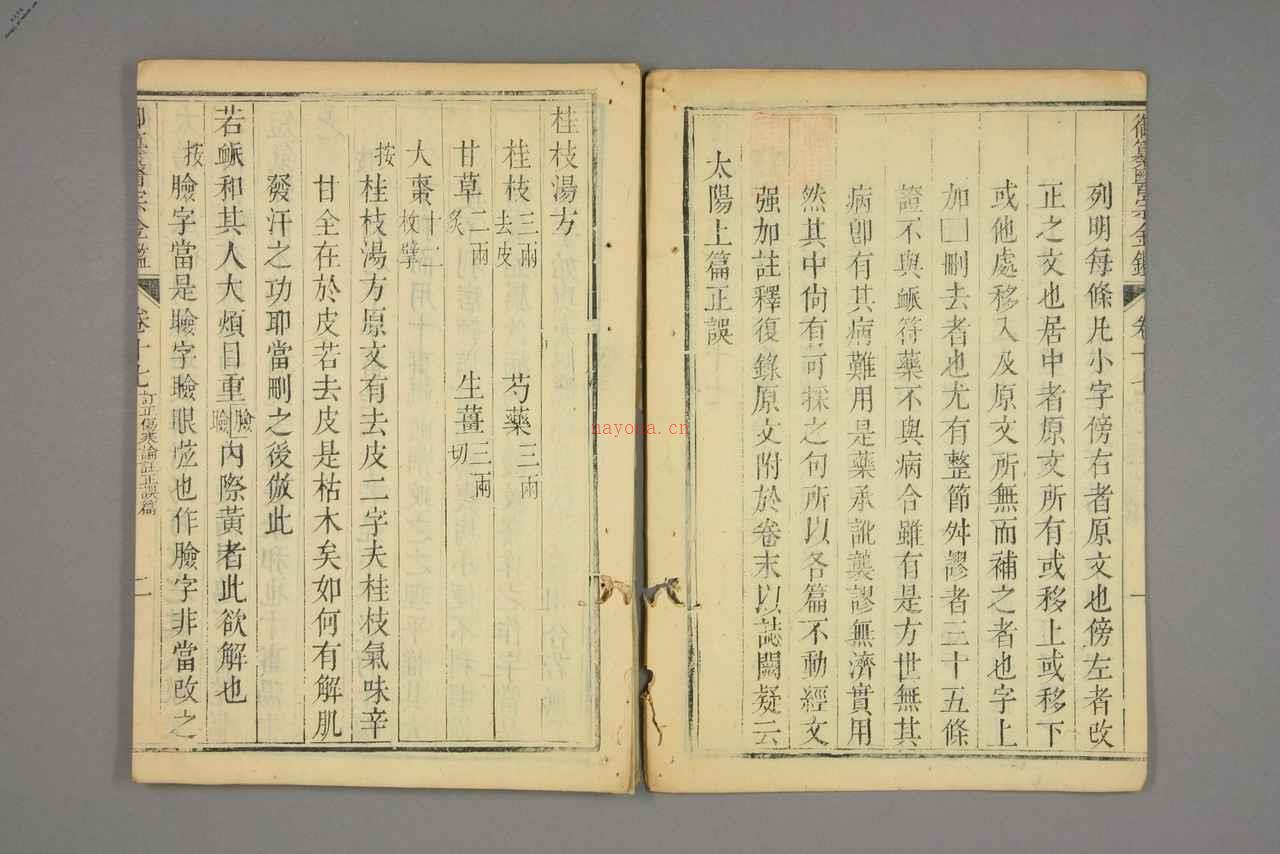 御纂醫宗金鑑 卷十七
列明每條凡小字傍右者原文也傍左者改
正之文也居中者原文所有或移上或移下
或他處移入及原文所無而補之者也字上
加囗刪去者也尤有整節舛謬者三十五條
證不與脈符藥不與病合雖有是方世無其
病卽有其病難用是藥承訛襲謬無濟實用
然其中尙有可採之句所以各篇不動經文
强加註釋復錄原文附於卷末以誌闕疑云
太陽上篇正誤
桂枝湯方
桂枝三兩去皮 芍藥三兩
甘草二兩炙 生薑三兩切
大棗十二枚擘
按桂枝湯方原文有去皮二字夫桂枝氣味辛
甘全在於皮若去皮是枯木矣如何有解肌
發汗之功耶當刪之後倣此
若脈和其人大煩目重臉瞼內際黃者此欲解也
按臉字當是瞼字瞼眼弦也作臉字非當改之
御纂醫宗金鑑 卷十七 訂正傷寒論註正誤篇 二
nayona.cn